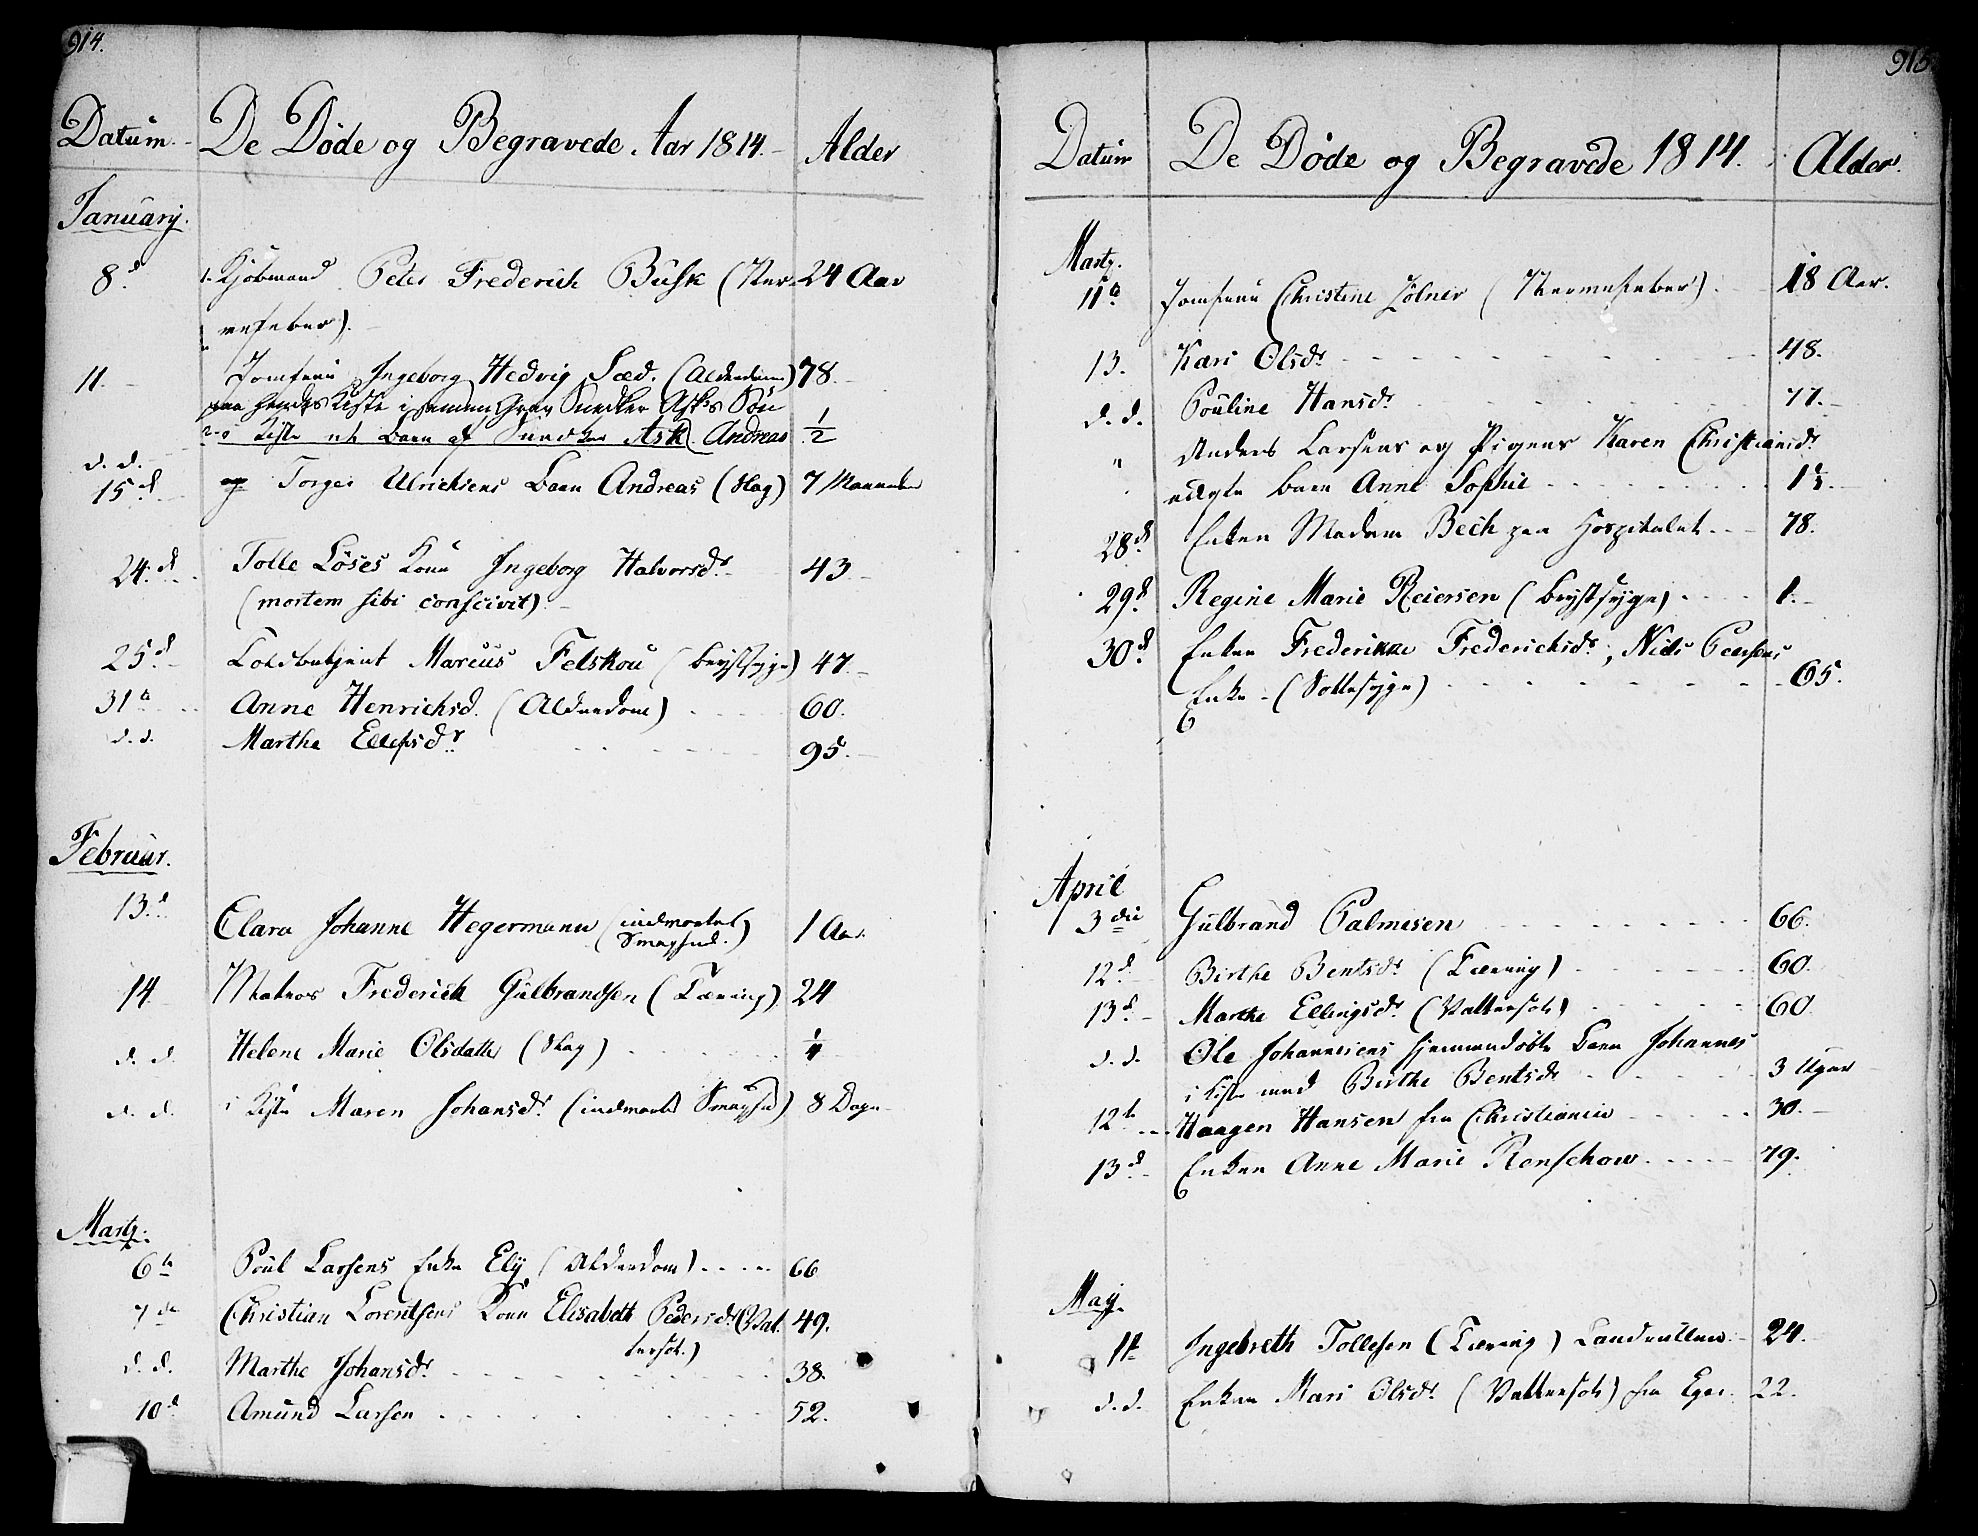 914.
Datum. De Døde og Begravede Aar 1814. Alder
Januarij.
8d 1. Kjøbmand Peter Frederich Busk (Ner- 24 Aar
vefeber).
11. Jomfrue Ingeborg Hedvig Sæd. (Alderdom) 78.
paa hendes Kiste i samme Grav Snedker Asks Søn
Kiste et Barn af Snedker Ask. Andreas 1/2
d. d.
15d og Torger Ulrichsens Barn Andreas (Slag) 7 Maaneder
24.d Tolle Løses Kone Ingeborg Halvorsdr 43
(mortem sibi conscivit).
25d Toldbetjent Marcus Felskou (Brystsyge) 47.
31te Anne Henrichsd. (Alderdom) 60.
d. d. Marthe Ellefsdr 95.
Februar.
13.d Clara Johanne Hegermann (indvortes 1 Aar.
Smaapul.)
14 Matros Frederich Gulbrandsen (Tæring) 24
d. d. Helene Marie Olsdatter (Slag) 1/4
d. d. i Kiste Maren Johansdr (indvortes Smaapul) 8 Dage
Martz.
6te Poul Larsens Enke Ely (Alderdom) 66
7de Christian Lorentsens Kone Elisabeth Pedersdr (Vat- 49.
tersot.)
d. d. Marthe Johansdr 38.
10d Amund Larsen 52.
915
Datum De Døde og Begravede 1814. Alder.
Martz.
11te Jomfrue Christine Zølner (Nervefeber) 18 Aar.
13. Kari Olsdr 48.
d. d. Pouline Hansdr 77.
" Anders Larsens og Pigens Karen Christiansdr
uægte barn Anne Sophie 1 1/2.
28d Enken Madam Bech paa Hospitalet 78.
29d Regine Marie Reiersen (Brystsyge) 1.
30d Enken Frederikke Frederichsdr, Niels Peersens
Enke - (Sottesyge) 65.
April
3die Gulbrand Palmesen 66.
12d Birthe Bentsdr (Tæring) 60.
13d Marthe Ellingsdr (Vattersot) 60
d. d. Ole Johannesens hjemmedøbte Barn Johannes
i Kiste med Birthe Bentsdr 3 Uger
12te Haagen Hansen fra Christiania 30.
13d Enken Anne Marie Renschow 79.
Maij.
1te Ingebreth Tollefsen (Tæring) 24.
d. d. Enken Mari Olsdr (Vattersot) fra Eger. 22.